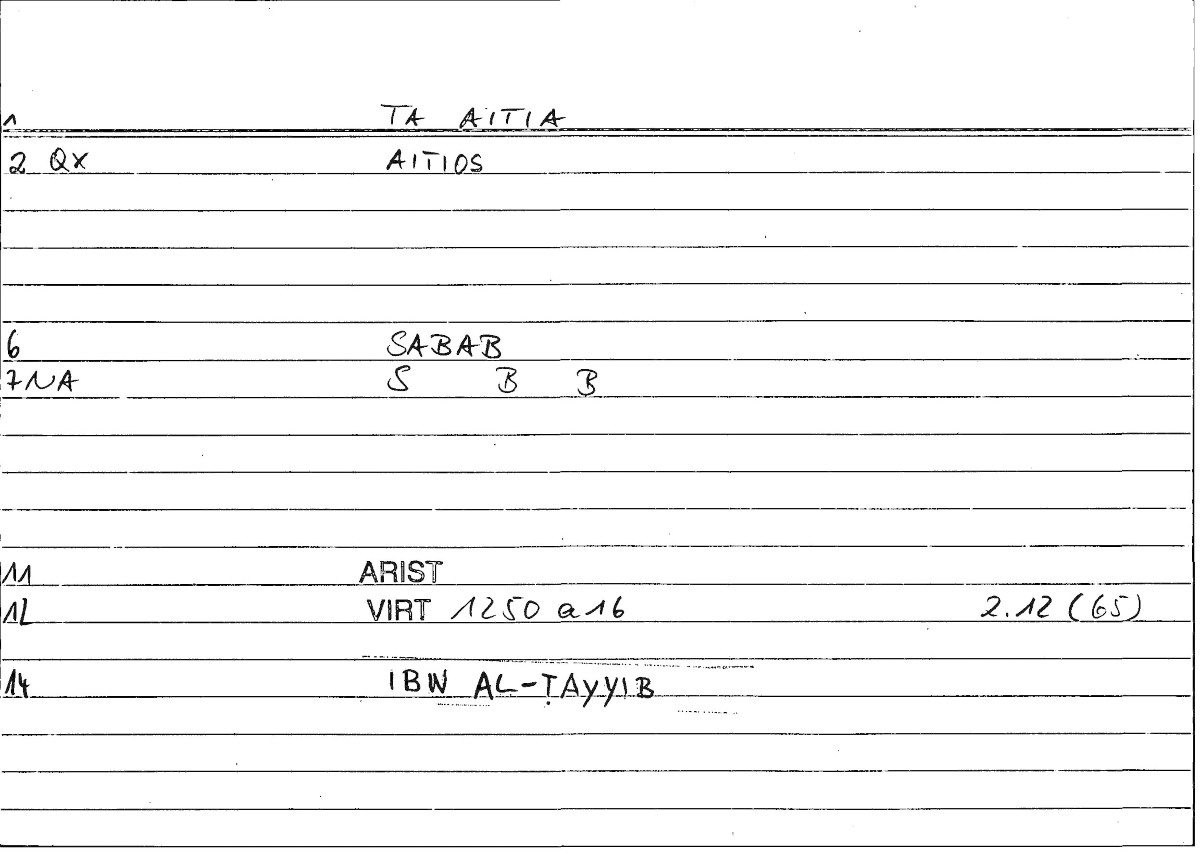 1 TA AITIA
2 QX AITIOS
6 SABAB
7NA S B B
11 ARIST
12 VIRT 1250 a 16 2.12 (65)
14 IBN AL-ṬAYYIB